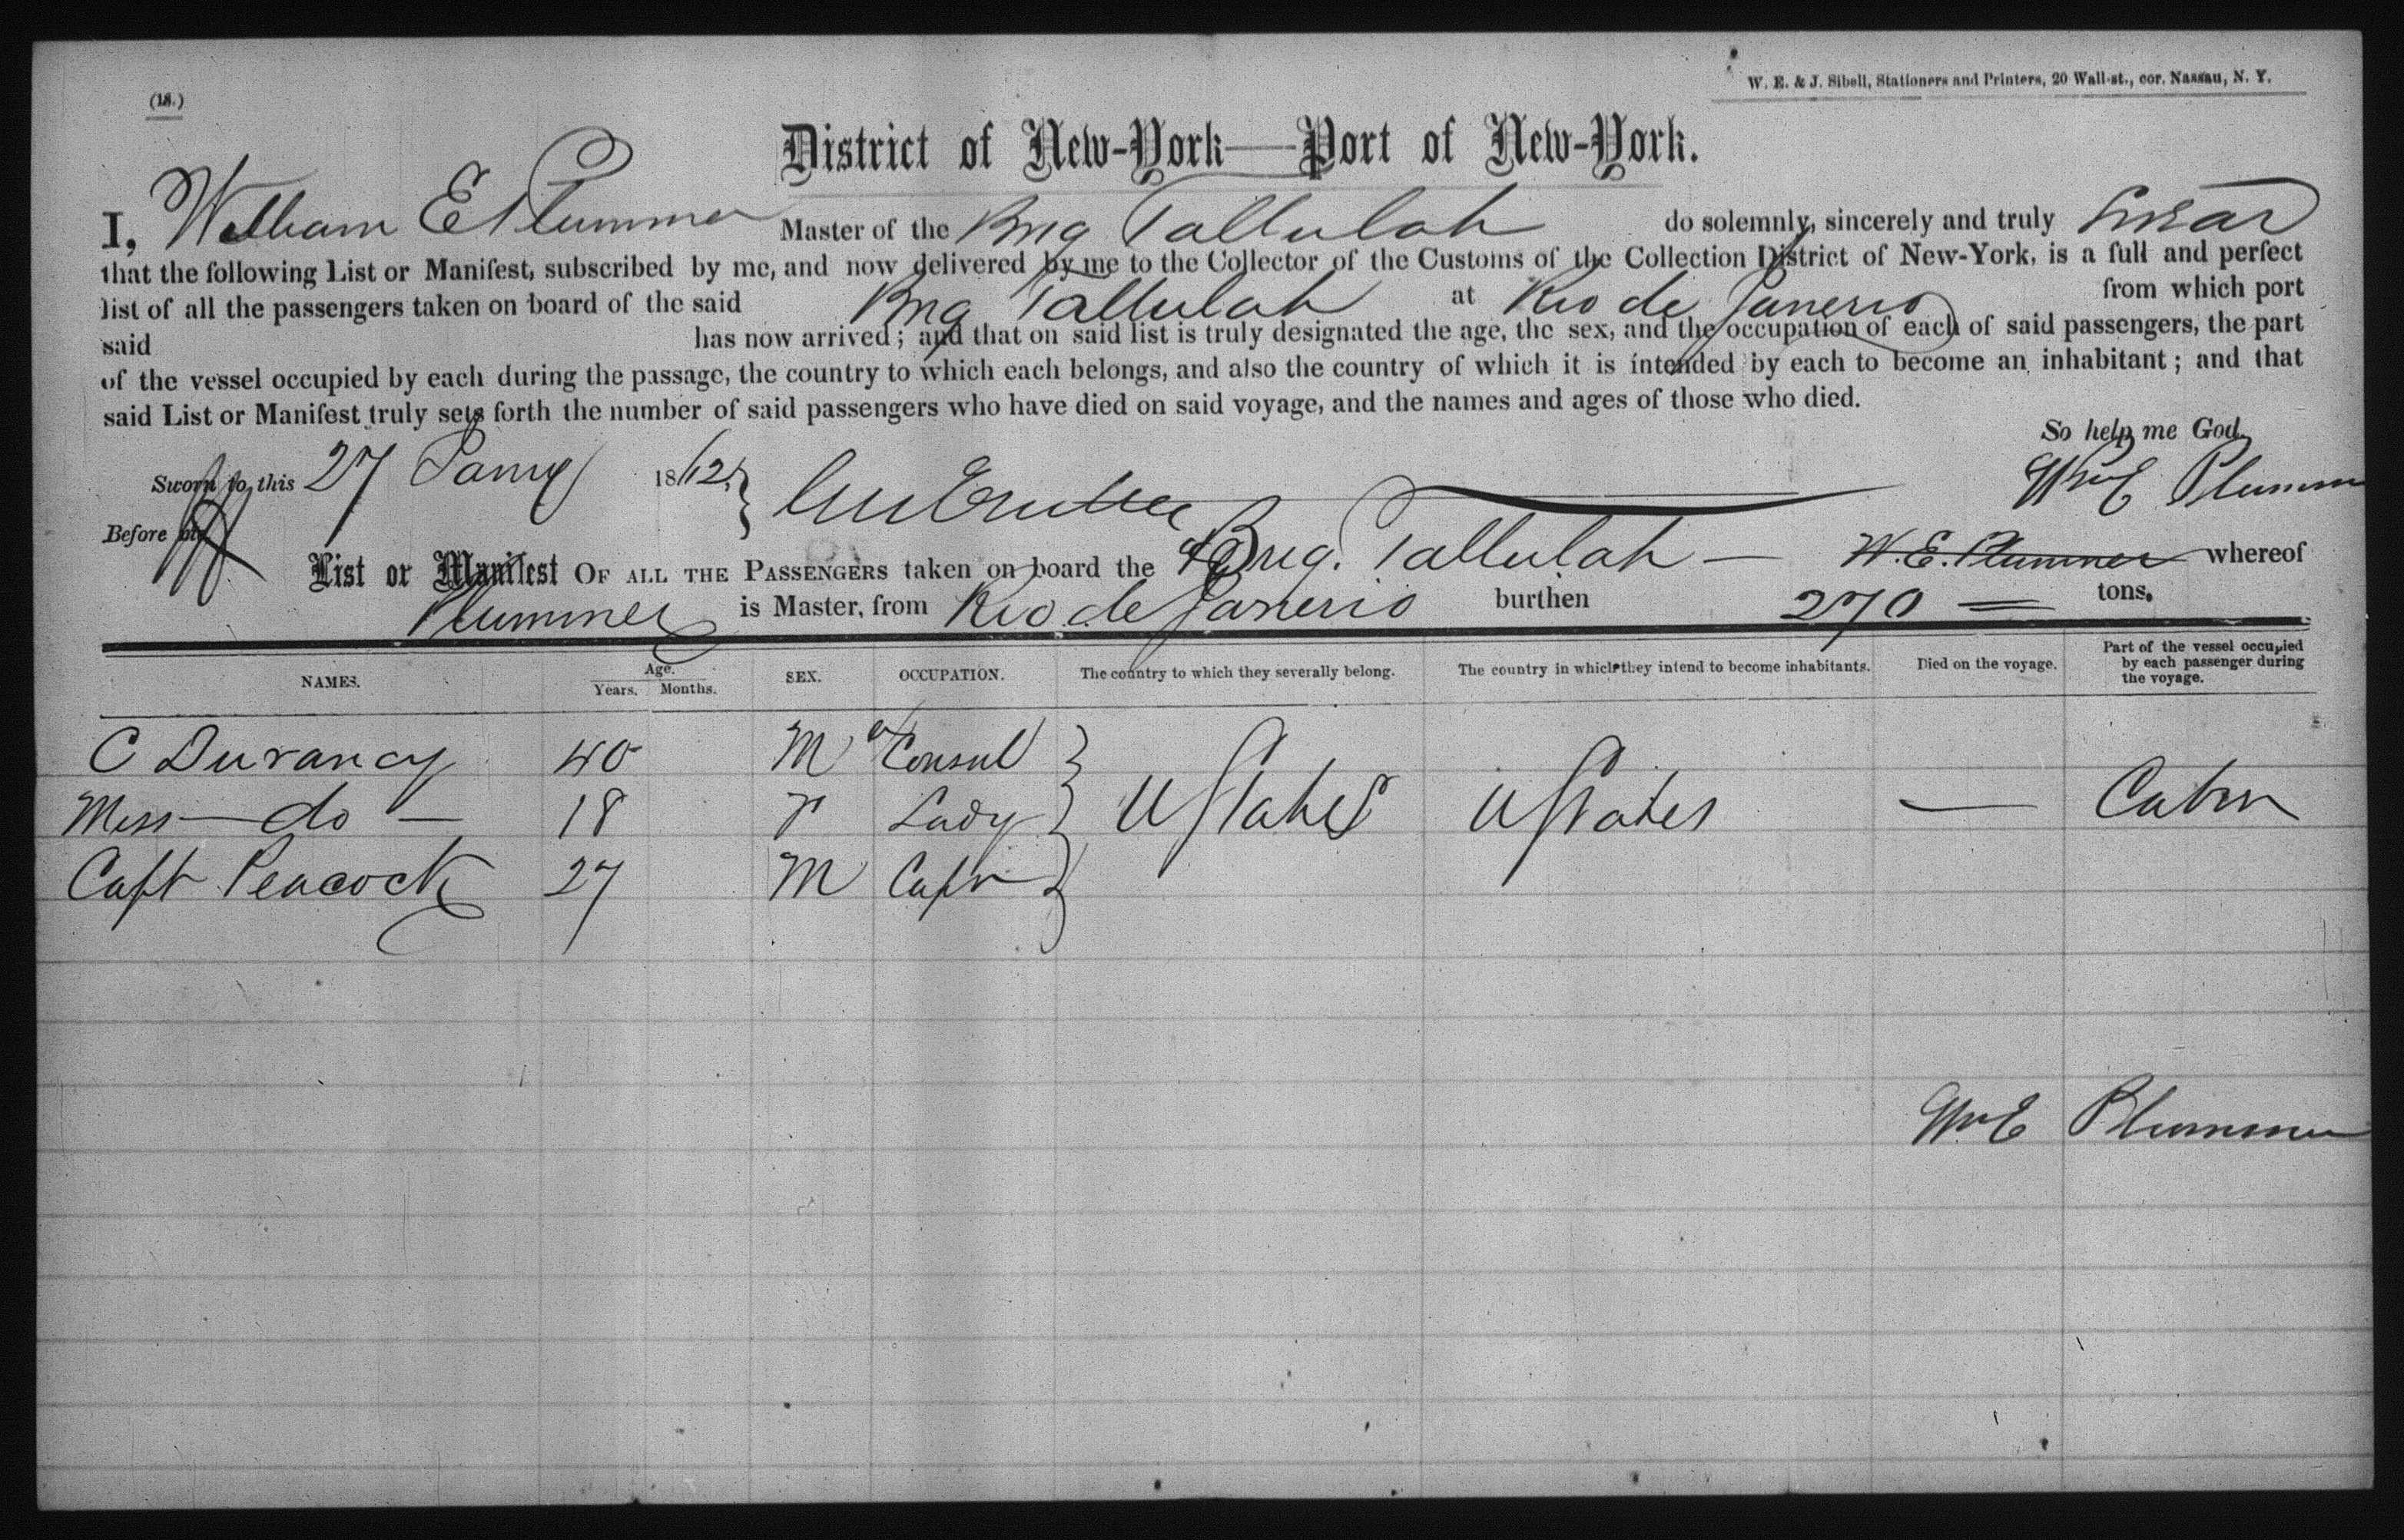 W. E. & J. Sibell, Stationers and Printers, 20 Wall-st., cor. Nassau, N. Y.
(18.)
District of New-York—Port of New-York.
I, William E Plummer Master of the Brig Tallulah do solemnly, sincerely and truly swear
that the following List or Manifest, subscribed by me, and now delivered by me to the Collector of the Customs of the Collection District of New-York, is a full and perfect
list of all the passengers taken on board of the said Brig Tallulah at Rio de Janerio from which port
said has now arrived; and that on said list is truly designated the age, the sex, and the occupation of each of said passengers, the part
of the vessel occupied by each during the passage, the country to which each belongs, and also the country of which it is intended by each to become an inhabitant; and that
said List or Manifest truly sets forth the number of said passengers who have died on said voyage, and the names and ages of those who died.
So help me God.
Sworn to this 27 Jany 1862 Wm E Plummer
Before me
List or Manifest OF ALL THE PASSENGERS taken on board the Brig. Tallulah — W. E. Plummer whereof
Plummer is Master, from Rio de Janerio burthen 270 tons.
NAMES. Age. Years. Months. SEX. OCCUPATION. The country to which they severally belong. The country in which they intend to become inhabitants. Died on the voyage. Part of the vessel occupied by each passenger during the voyage.
C Durancy 40 M Consul
Miss — do — 18 F Lady U States U States — Cabin
Capt Peacock 27 M Capt
Wm E Plummer